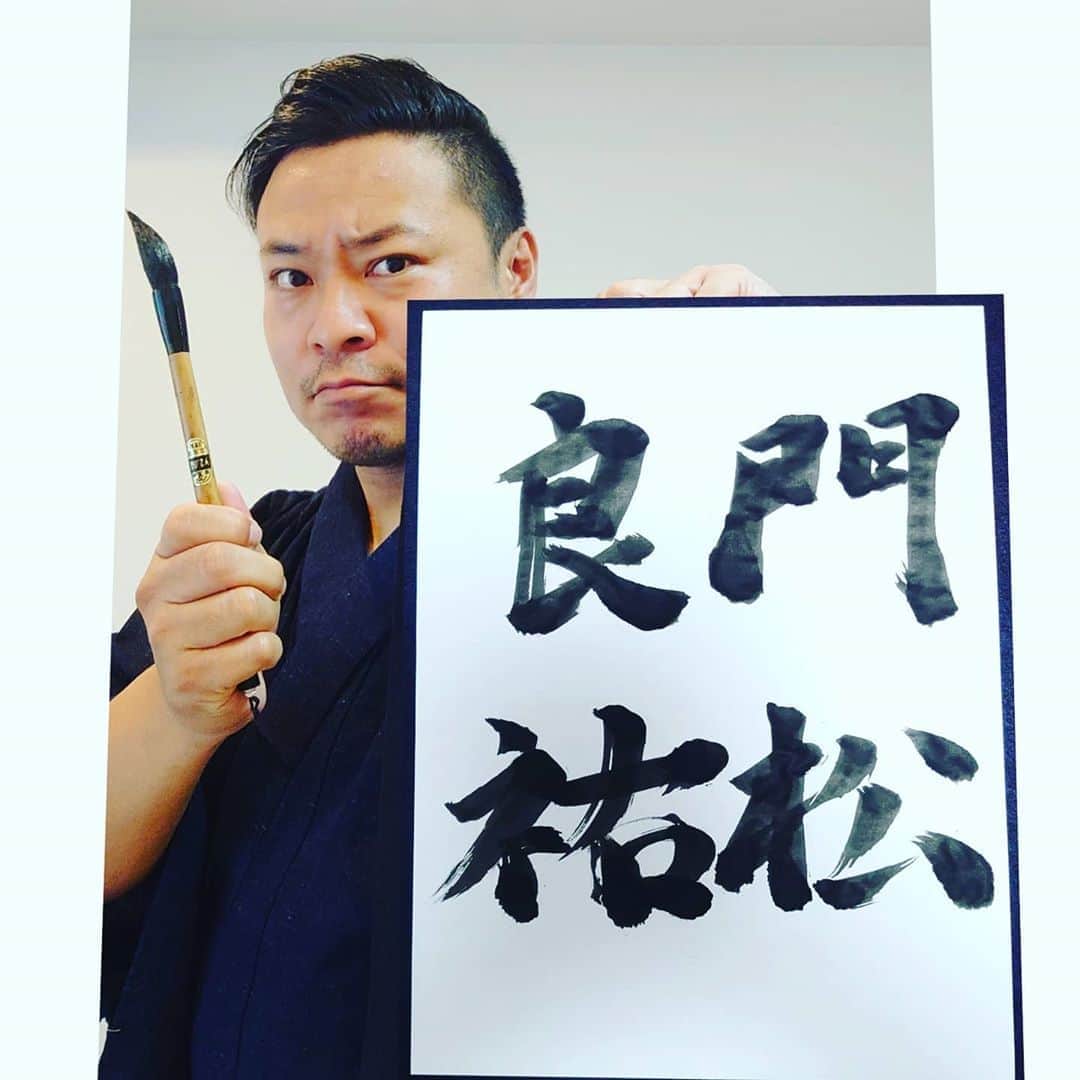 門松
良祐